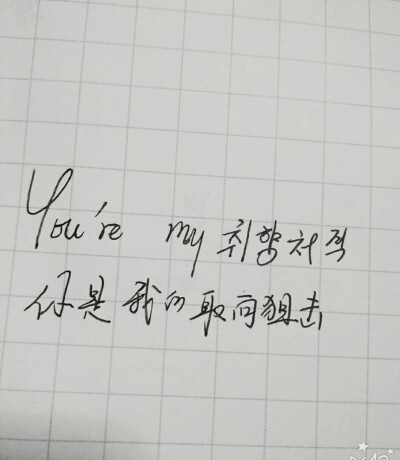 You're my 취향저격
你是我的取向狙击